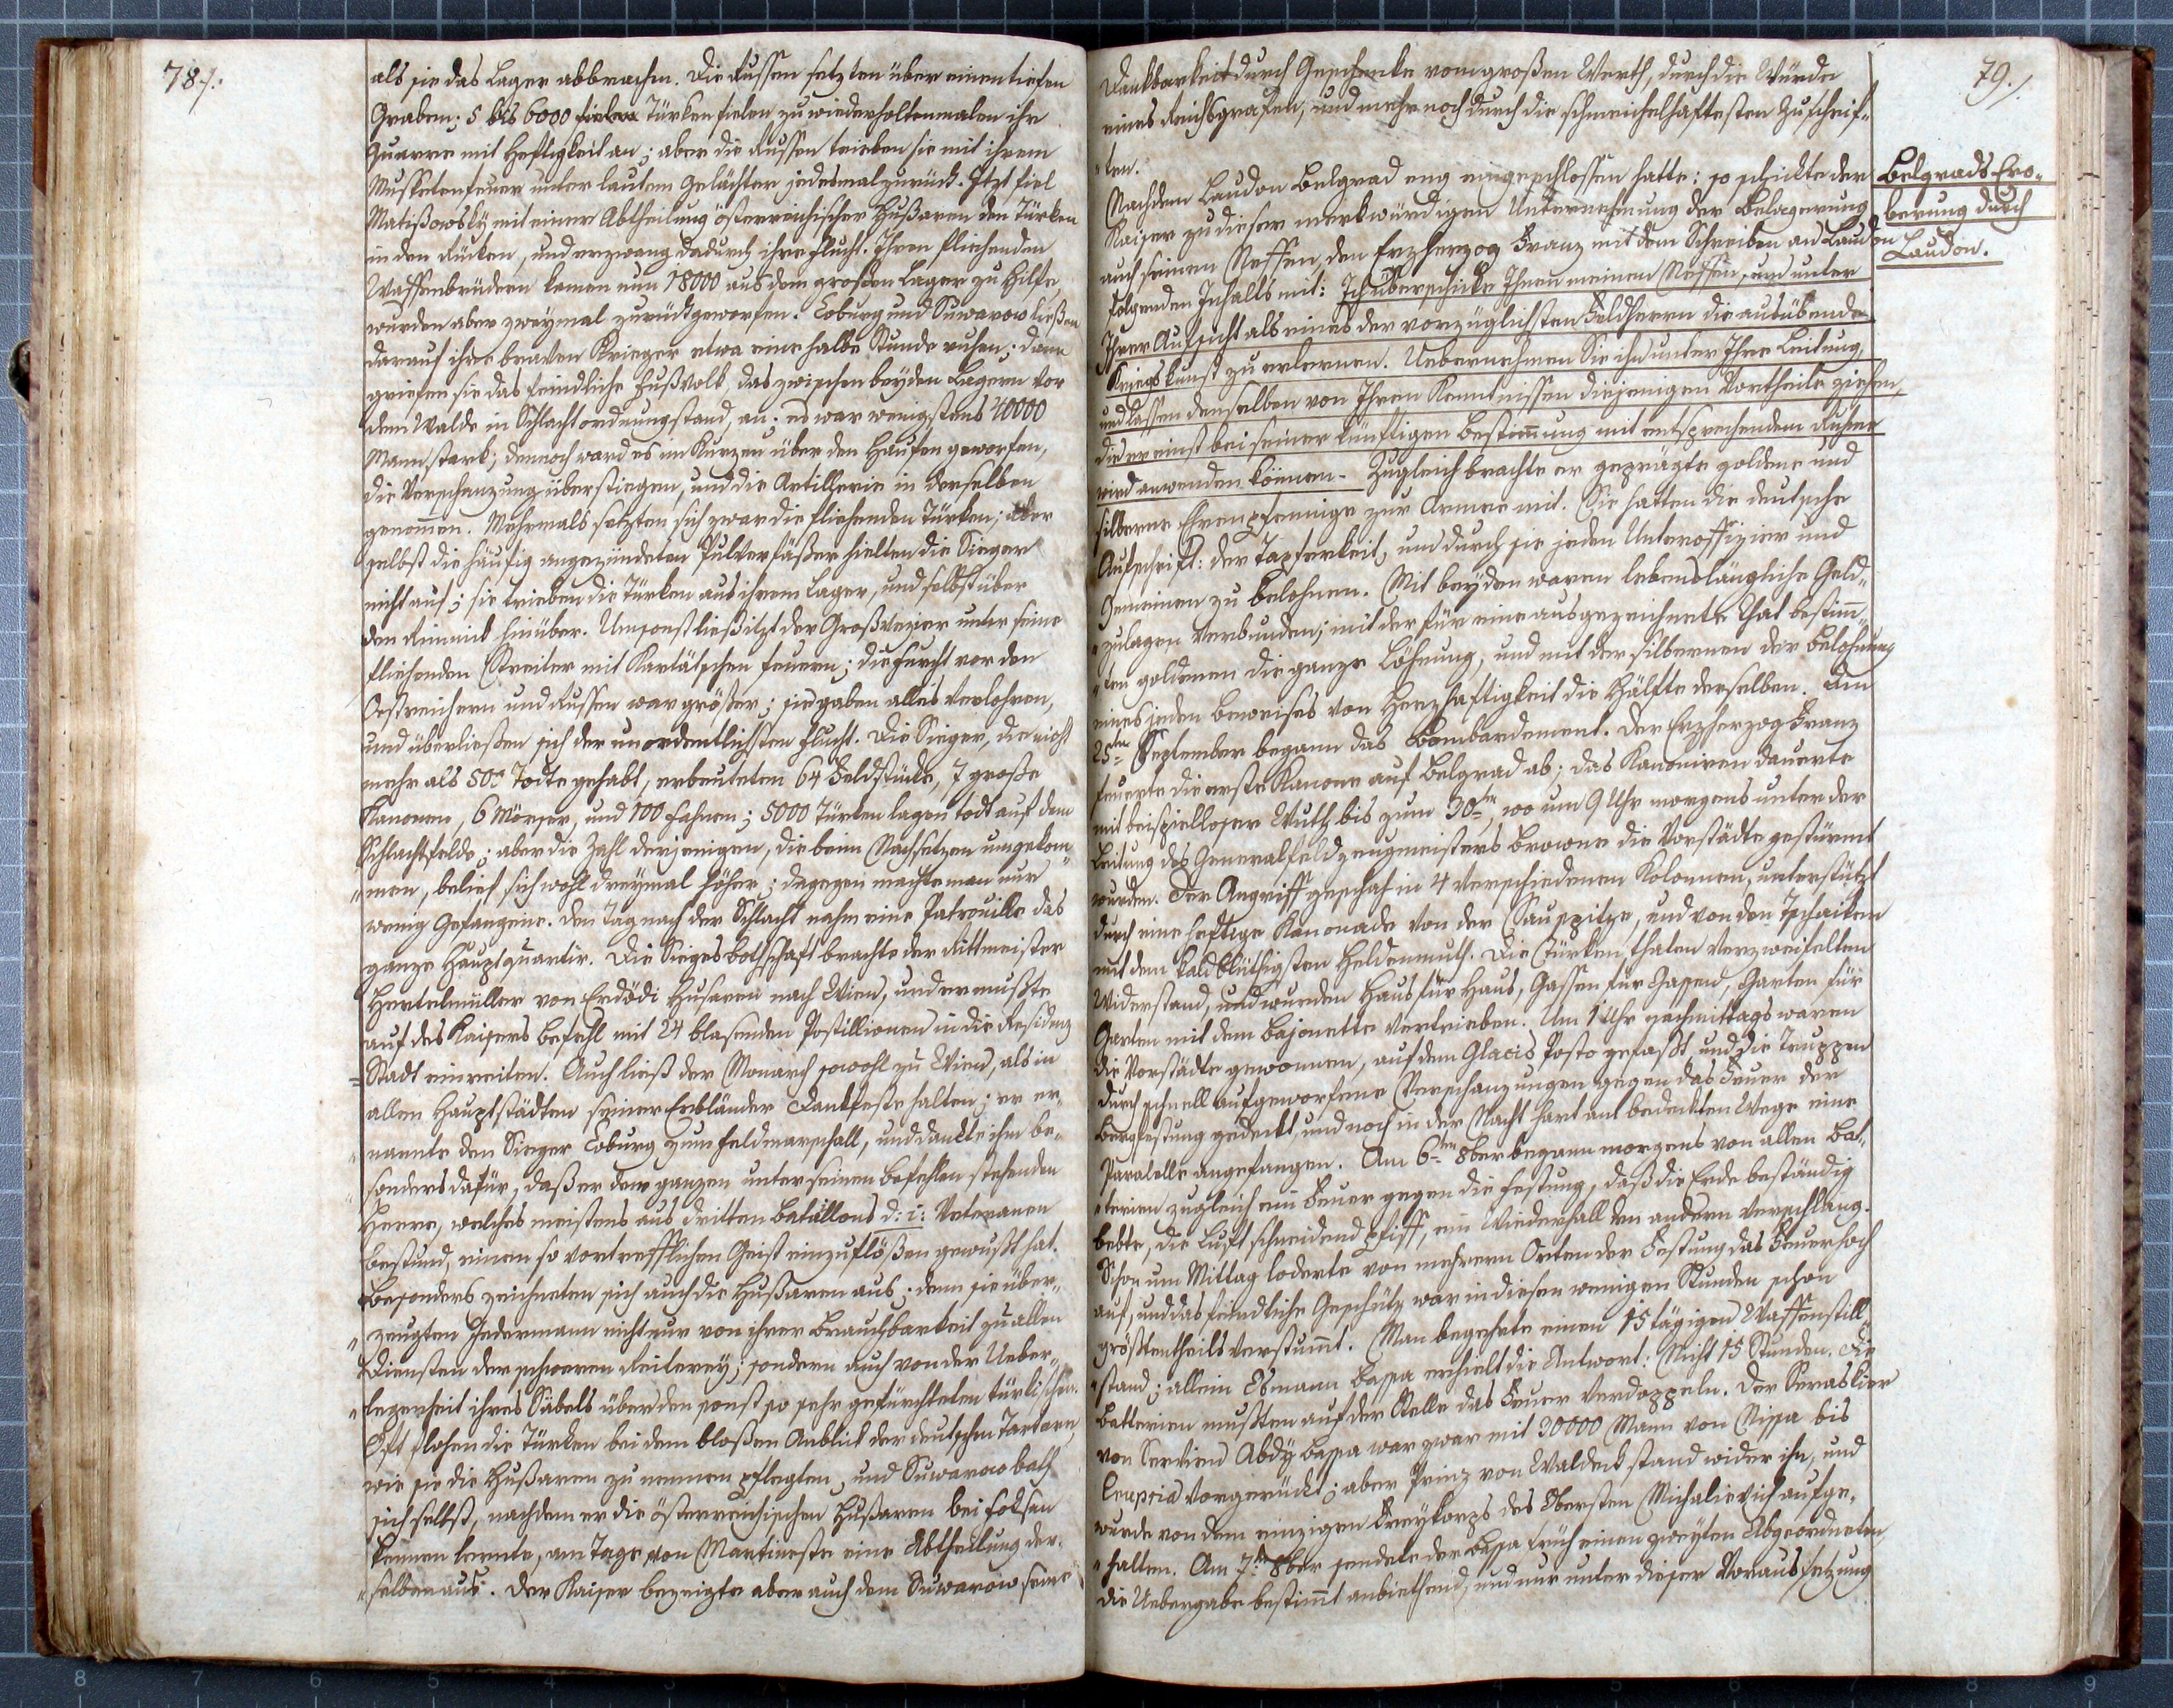 78./.
als sie das Lager abbrachen. Die Russen setzten über einen tiefen
Graben; 5 bis 6000 fielen Türken fielen zu wiederholtenmalen ihr
Quarree mit Heftigkeit an; aber die Russen trieben sie mit ihrem
Musketenfeuer unter lautem Gelächter jedesmal zurück. Itzt fiel
Matißowsky mit einer Abtheilung österreichischer Hußaren den Türken
in den Rücken, und erzwang dadurch ihre Flucht. Ihren fliehenden
Waffenbrüdern kamen nun 18000 aus dem großen Lager zu Hilfe,
wurden aber zweymal zurückgeworfen. Coburg und Suwarow ließen
darauf ihre braven Krieger etwa eine halbe Stunde ruhen; dann
griefen sie das feindliche Fußvolk, das zwischen beyden Lagern vor
dem Walde in Schlachtordnung stand, an; es war wenigstens 40000
Mann stark; dennoch ward es im Kurzen über den Haufen geworfen,
die Verschanzung überstiegen, und die Artillerie in derselben
genommen. Mehrmals setzten sich zwar die fliehenden Türken; aber
selbst die häufig angezündeten Pulverfäßer hielten die Sieger
nicht auf; sie trieben die Türken aus ihrem Lager, und selbst über
den Rimnik hinüber. Umsonst ließ itzt der Großvezier unter seine
fliehenden Streiter mit Kartätschen feuern; die Furcht vor den
Oestreichern und Russen war größer; sie gaben alles verlohren,
und überließen sich der unordentlichsten Flucht. Die Sieger, die nicht
mehr als 500 Todte gehabt, erbeuteten 64 Feldstücke, 7 große
Kanonen, 6 Mörser, und 100 Fahnen; 5000 Türken lagen todt auf dem
Schlachtfelde; aber die Zahl derjenigen, die beim Nachsetzen umgekom„
„men, belief sich wohl dreymal höher; dagegen machte man nur
wenig Gefangene. Den Tag nach der Schlacht nahm eine Patrouille das
ganze Hauptquartir. Die Siegesbothschaft brachte der Rittmeister
Hertelmüller von Erdödi Husaren nach Wien, und er mußte
auf des Kaisers Befehl mit 24 blasenden Postillionen in die Residenz
=Stadt einreiten. Auch ließ der Monarch sowohl zu Wien, als in
allen Hauptstädten seiner Erbländer Dankfeste halten; er er„
„nannte den Sieger Coburg zum Feldmarschall, und dankte ihm be„
„sonders dafür, daß er dem ganzen unter seinen Befehlen stehenden
Heere, welches meistens aus dritten Bataillons d: i: Veteranen
bestund, einen so vortrefflichen Geist einzuflößen gewußt hat.
Besonders zeichneten sich auch die Hußaren aus; denn sie über„
„zeugten Jedermann nicht nur von ihrer Brauchbarkeit zu allen
Diensten der schweren Reiterey; sondern auch von der Ueber„
„legenheit ihres Säbels über den sonst so sehr gefürchteten türkischen.
Oft flohen die Türken bei dem bloßen Anblick der deutschen Tartaren,
wie sie die Hußaren zu nennen pflegten, und Suwarow bath
sich selbst, nachdem er die österreichischen Hußaren bei Foksan
kennen lernte, am Tage von Martinestie eine Abtheilung der„
„selben aus. Der Kaiser bezeigte aber auch dem Suwarow seine
79./.
Dankbarkeit durch Geschenke vom großen Werth, durch die Würde
eines Reichsgrafen, und mehr noch durch die schmeichelhaftesten Zuschrif„
„ten.
Belgrads Ero„
berung durch
Laudon.
Nachdem Laudon Belgrad eng eingeschlossen hatte: so schickte der
Kaiser zu dieser merkwürdigen Unternehmung der Belagerung
auch seinen Neffen, den Erzherzog Franz mit dem Schreiben an Laudon
folgenden Inhalts mit: Ich überschicke Ihnen meinen Neffen, um unter
Ihrer Aufsicht als eines der vorzüglichsten Feldherrn die ausübende
Kriegskunst zu erlernen. Uebernehmen Sie ihn unter Ihre Leitung,
und lassen denselben von Ihren Kenntnissen diejenigen Vortheile ziehen,
die er einst bei seiner künftigen Bestimmung mit entsprechendem Ruhme
wird anwenden können. Zugleich brachte er geprägte goldene und
silberne Ehrenpfennige zur Armee mit. Sie hatten die deutsche
Aufschrift: der Tapferkeit, um durch sie jeden Unteroffizier und
Gemeinen zu belohnen. Mit beyden waren lebenslängliche Geld„
„zulagen verbunden; mit der für eine ausgezeichnete That bestimm„
„ten goldenen die ganze Löhnung, und mit der silbernen der Belohnung
eines jeden Beweises von Herzhaftigkeit die Hälfte derselben. Am
25ten September begann das Bombardement. Der Erzherzog Franz
feuerte die erste Kanone auf Belgrad ab; das Kanoniren dauerte
mit beispielloser Wuth bis zum 30ten, wo um 9 Uhr morgens unter der
Leitung des Generalfeldzeugmeisters Browne die Vorstädte gestürmt
wurden. Der Angriff geschah in 4 verschiedenen Kolonnen, unterstützt
durch eine heftige Kanonade von der Sauspitze, und von den Tschaiken
mit dem kaltblüthigsten Heldenmuth. Die Türken thaten verzweifelten
Widerstand, und wurden Haus für Haus, Gassen für Gassen, Garten für
Garten mit dem Bajonette vertrieben. Um 1 Uhr nachmittags waren
die Vorstädte gewonnen, auf dem Glacis Posto gefaßt, und die Truppen
durch schnell aufgeworfene Verschanzungen gegen das Feuer der
Bergfestung gedeckt, und noch in der Nacht hart am bedeckten Wege eine
Paralelle angefangen. Am 6ten 8ber begann morgens von allen Bat„
„terien zugleich ein Feuer gegen die Festung, daß die Erde beständig
bebte, die Luft schneidend pfiff, ein Wiederhall den andern verschlang.
Schon um Mittag loderte von mehrern Orten der Festung das Feuer hoch
auf, und das feindliche Geschütz war in diesen wenigen Stunden schon
größtentheils verstummt. Man begehrte einen 15 tägigen Waffenstill„
„stand; allein Osmann Bassa erhielt die Antwort: Nicht 15 Stunden. Die
Batterien mußten auf der Stelle das Feuer verdoppeln. Der Seraskier
von Servien Abdy Bassa war zwar mit 30000 Mann von Nissa bis
Czupria vorgerückt; aber Prinz von Waldeck stand wider ihn, und
wurde von dem einzigen Freykorps des Obersten Michalievich aufge„
„halten. Am 7t 8ber sendete der Bassa früh einen zweyten Abgeordneten,
die Uebergabe bestimmt anbiethend, und nur unter dieser Voraussetzung